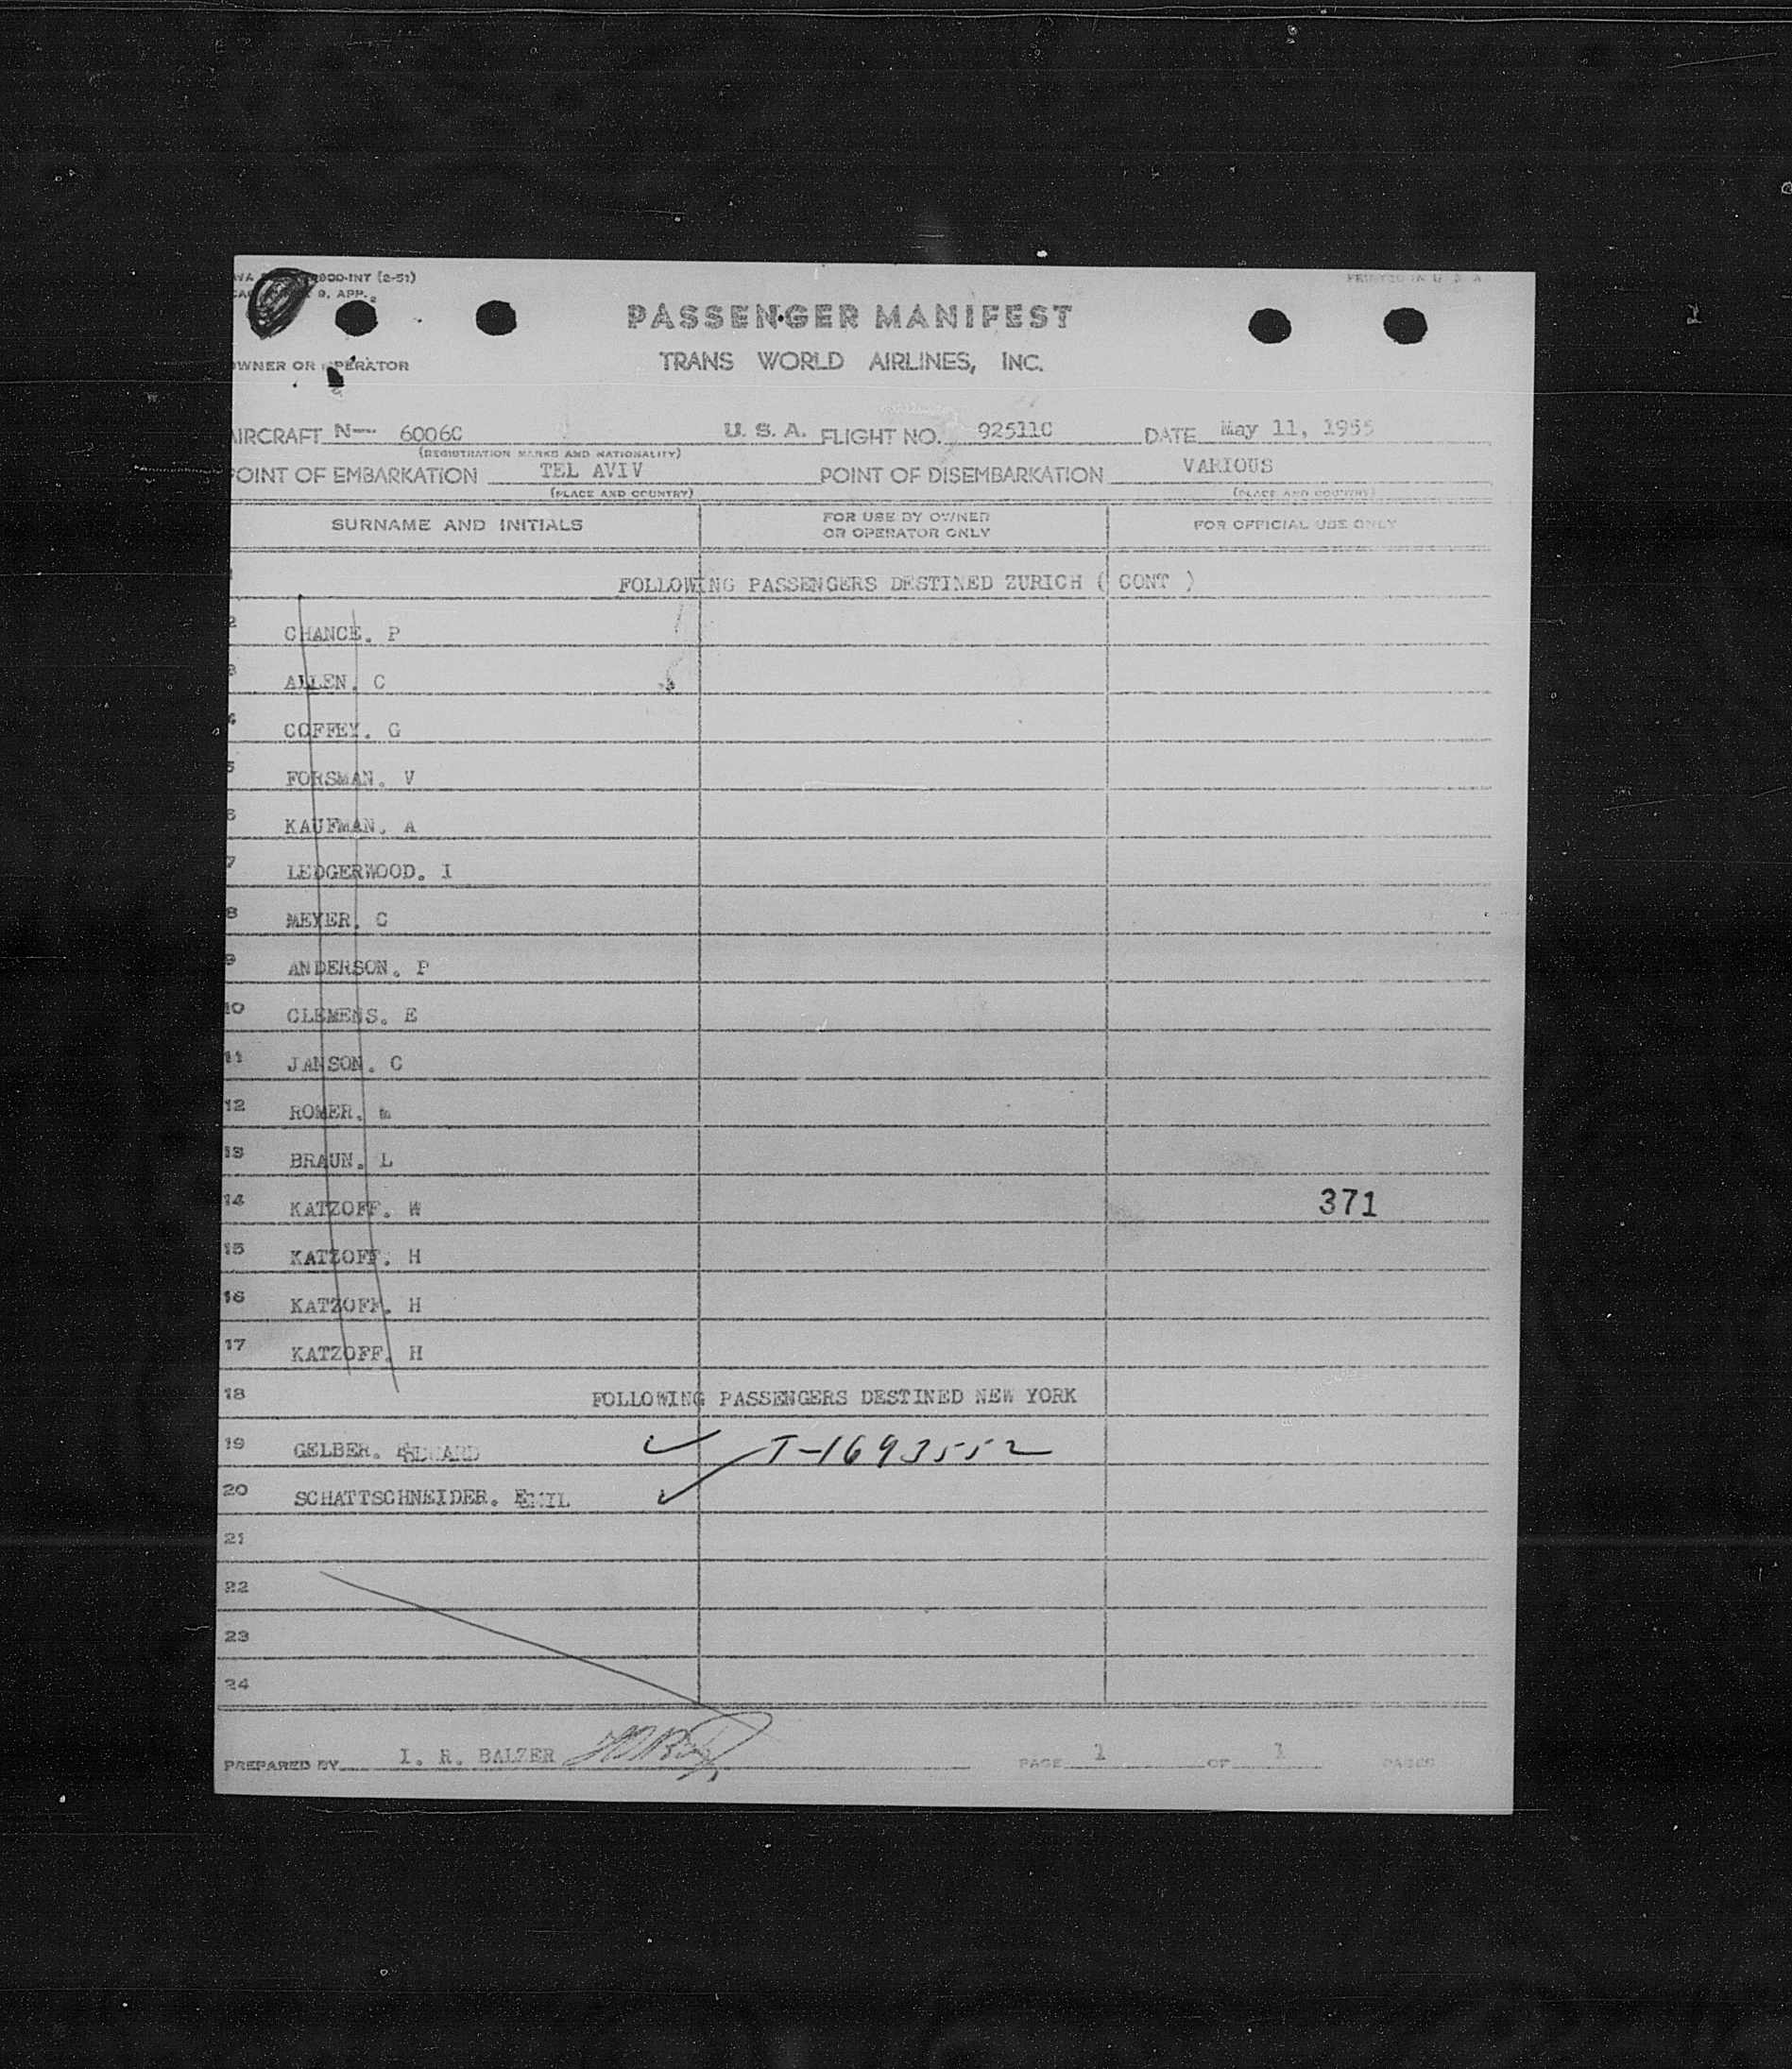 800-INT (2-51)
9, APP.
PRINTED IN U S A
PASSENGER MANIFEST
OWNER OR OPERATOR TRANS WORLD AIRLINES, INC.
AIRCRAFT N-- 6006C U. S. A. FLIGHT NO. 92511C DATE May 11, 1955
(REGISTRATION MARKS AND NATIONALITY)
POINT OF EMBARKATION TEL AVIV POINT OF DISEMBARKATION VARIOUS
(PLACE AND COUNTRY) (PLACE AND COUNTRY)
SURNAME AND INITIALS FOR USE BY OWNER OR OPERATOR ONLY FOR OFFICIAL USE ONLY
1 FOLLOWING PASSENGERS DESTINED ZURICH ( CONT )
2 CHANCE. P
3 ALLEN. C
4 COFFEY. G
5 FORSMAN. V
6 KAUFMAN. A
7 LEDGERWOOD. I
8 MEYER. C
9 ANDERSON. P
10 CLEMENS. E
11 JANSON. C
12 ROMER. m
13 BRAUN. L
14 KATZOFF. W 371
15 KATZOFF. H
16 KATZOFF. H
17 KATZOFF. H
18 FOLLOWING PASSENGERS DESTINED NEW YORK
19 GELBER. EDWARD T-1693552
20 SCHATTSCHNEIDER. EMIL
21
22
23
24
PREPARED BY I. R. BALZER PAGE 1 OF 1 PAGES